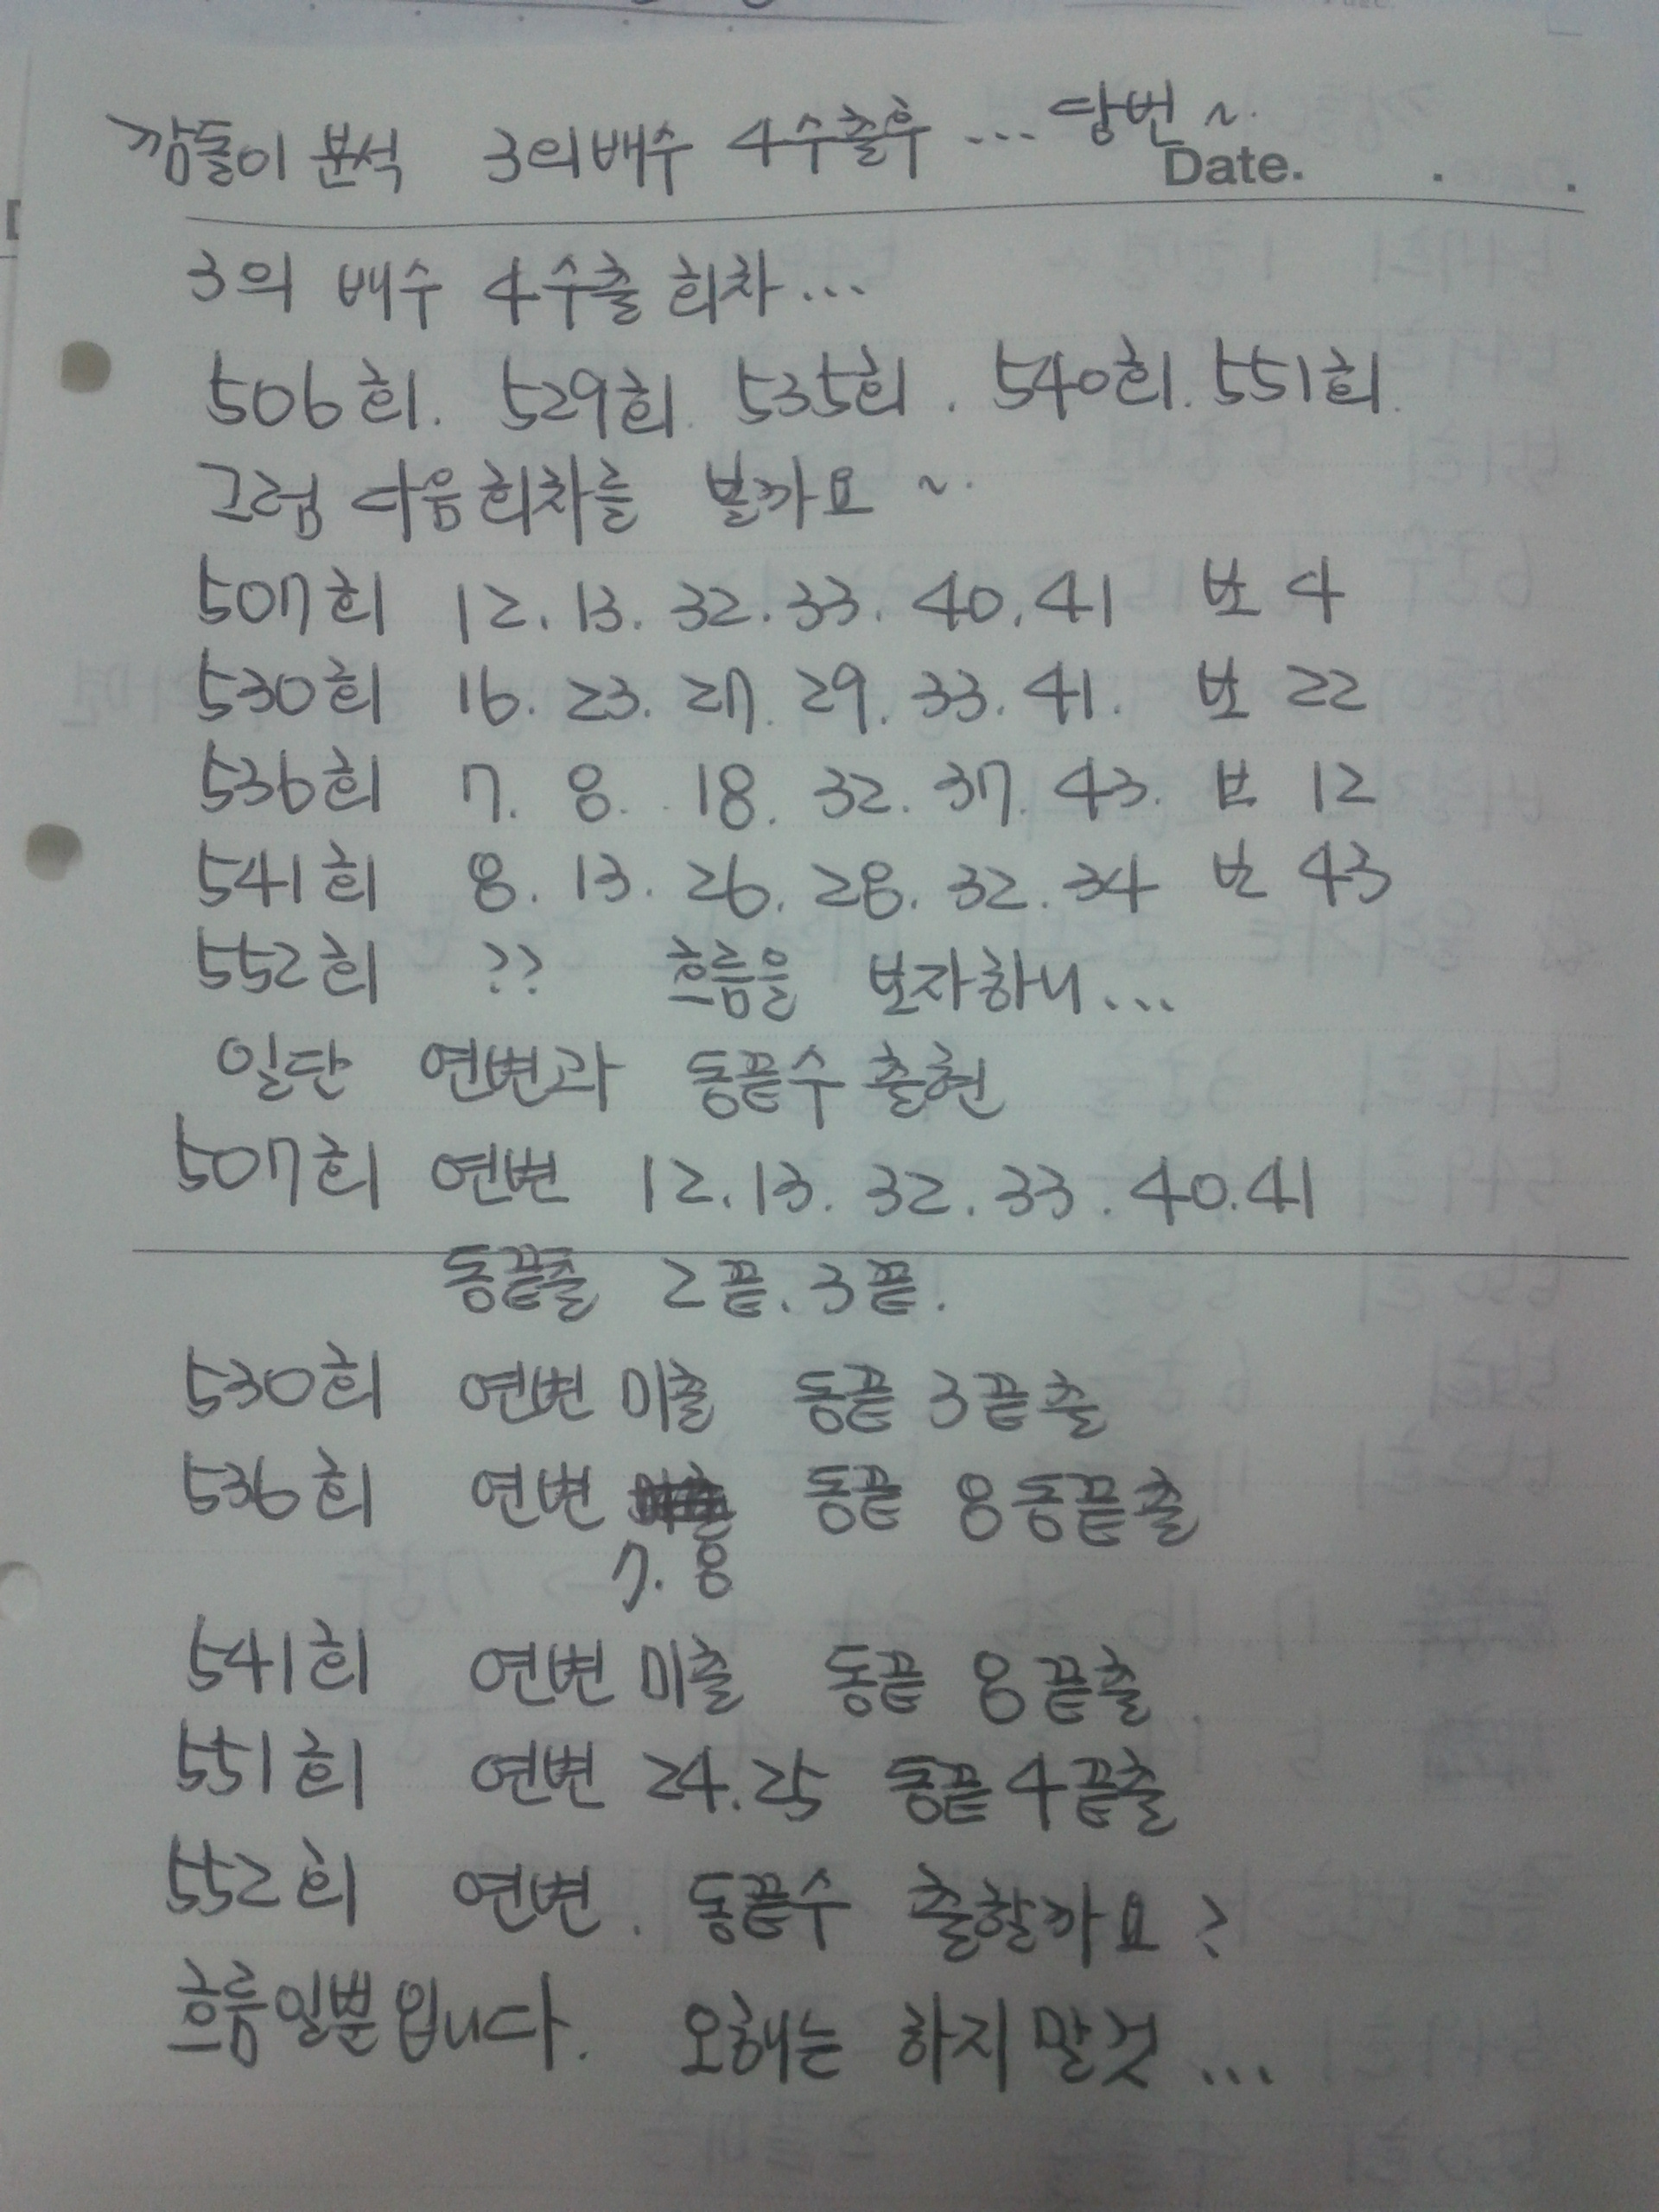 깜돌이 분석 3의배수 4수출후 ... 당번 ~.
Date. . .
3의 배수 4수출 회차...
506회. 529회. 535회. 540회. 551회.
그럼 다음회차를 볼까요 ~.
507회 12. 13. 32. 33. 40. 41 보 4
530회 16. 23. 27. 29. 33. 41. 보 22
536회 7. 8. 18. 32. 37. 43. 보 12
541회 8. 13. 26. 28. 32. 34 보 43
552회 ?? 흐름을 보자하니...
일단 연번과 동끝수 출현
507회 연번 12. 13. 32. 33. 40. 41
동끝출 2끝. 3끝.
530회 연번 미출 동끝 3끝출
536회 연번 동끝 8동끝출
7. 8
541회 연번 미출 동끝 8끝출
551회 연번 24. 25 동끝 4끝출
552회 연번. 동끝수 출할까요?
흐름일뿐입니다. 오해는 하지말것...